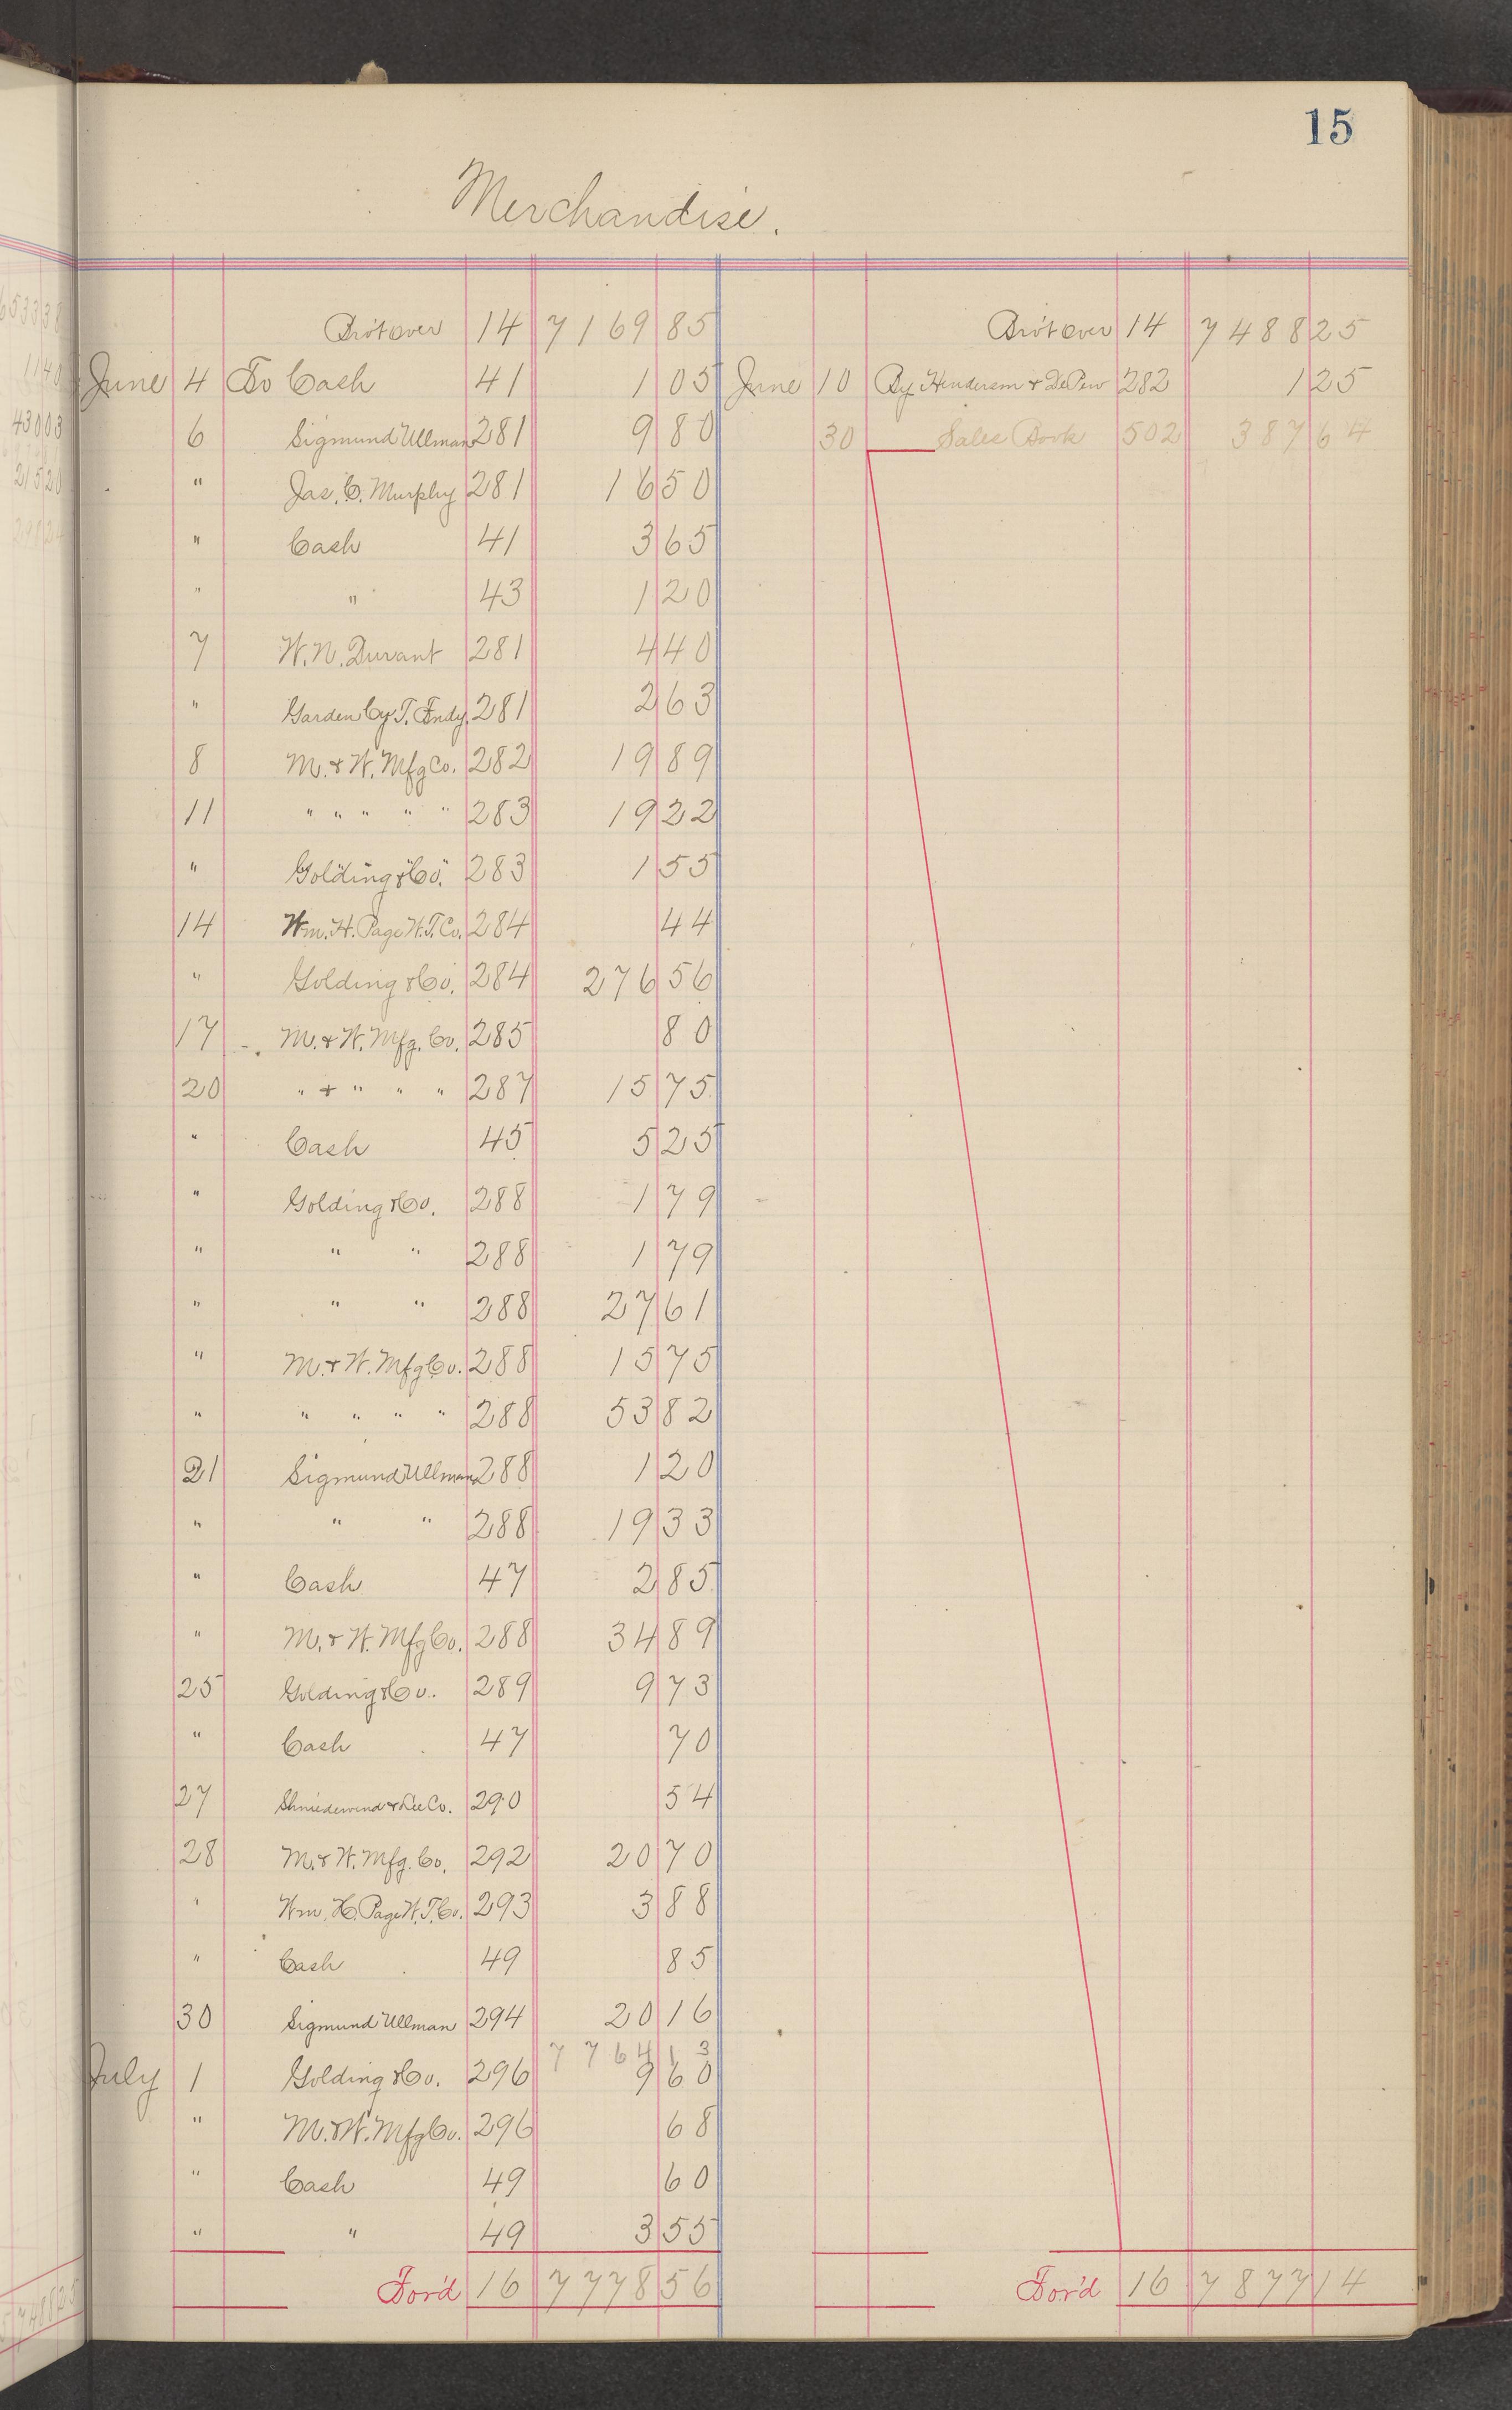 15
Merchandise.
Bro't over 14 7169 85
June 4 To Cash 41 1 05
6 Sigmund Ullman 281 9 80
" Jas. C. Murphy 281 16 50
" Cash 41 3 65
" " 43 1 20
7 W. N. Durant 281 4 40
" Garden Cy T. Fndy. 281 2 63
8 M. & W. Mfg Co. 282 19 89
11 " " " " " 283 19 22
" Golding & Co. 283 1 55
14 Wm. H. Page W. T. Co. 284 44
" Golding & Co. 284 276 56
17 M. & W. Mfg. Co. 285 80
20 " & " " " 287 15 75
" Cash 45 5 25
" Golding & Co. 288 1 79
" " " 288 1 79
" " " 288 27 61
" M. & W. Mfg Co. 288 15 75
" " " " " 288 53 82
21 Sigmund Ullman 288 1 20
" " " 288 19 33
" Cash 47 2 85
" M. & W. Mfg Co. 288 34 89
25 Golding & Co. 289 9 73
" Cash 47 70
27 Shniedewend & Lee Co. 290 54
28 M. & W. Mfg. Co. 292 20 70
" Wm. H. Page W. T. Co. 293 3 88
" Cash 49 85
30 Sigmund Ullman 294 20 16
7764 13
July 1 Golding & Co. 296 9 60
" M. & W. Mfg Co. 296 68
" Cash 49 60
" " 49 3 55
For'd 16 7778 56
Bro't over 14 7488 25
June 10 By Henderson & DePew 282 1 25
30 Sales Book 502 387 64
For'd 16 7877 14
65 33 38
11 40
430 03
215 20
7488 25